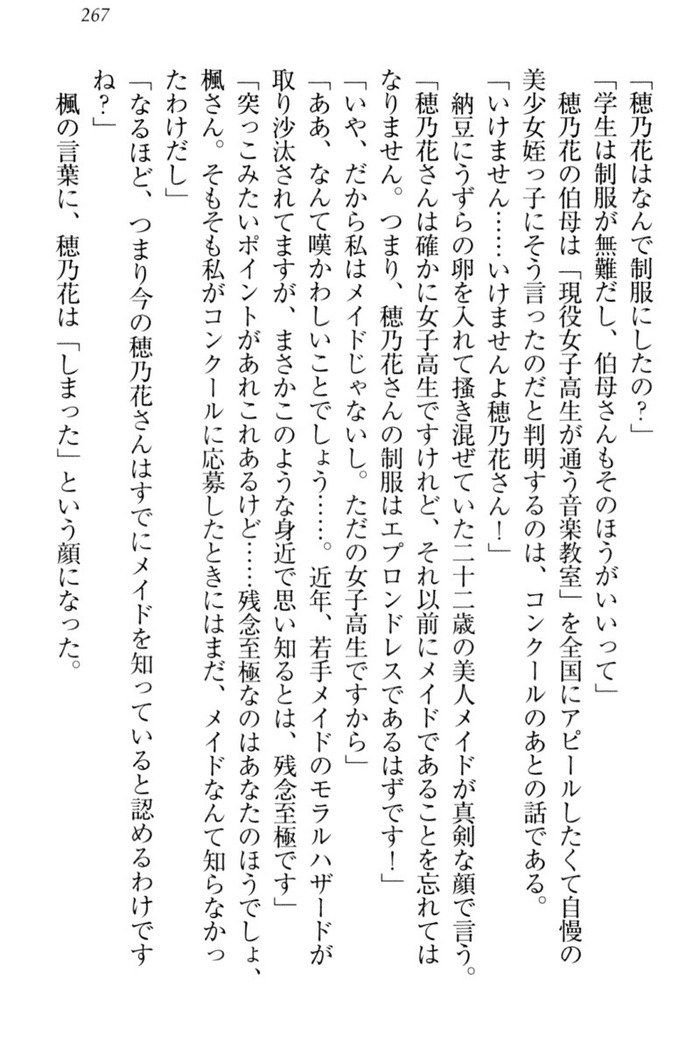 267
「穂乃花はなんで制服にしたの?」
「学生は制服が無難だし、伯母さんもそのほうがいいって」
　穂乃花の伯母は「現役女子高生が通う音楽教室」を全国にアピールしたくて自慢の
美少女姪っ子にそう言ったのだと判明するのは、コンクールのあとの話である。
「いけません……いけませんよ穂乃花さん!」
　納豆にうずらの卵を入れて掻き混ぜていた二十二歳の美人メイドが真剣な顔で言う。
「穂乃花さんは確かに女子高生ですけれど、それ以前にメイドであることを忘れては
なりません。つまり、穂乃花さんの制服はエプロンドレスであるはずです!」
「いや、だから私はメイドじゃないし。ただの女子高生ですから」
「ああ、なんて嘆かわしいことでしょう……。近年、若手メイドのモラルハザードが
取り沙汰されてますが、まさかこのような身近で思い知るとは、残念至極です」
「突っこみたいポイントがあれこれあるけど……残念至極なのはあなたのほうでしょ、
楓さん。そもそも私がコンクールに応募したときにはまだ、メイドなんて知らなかっ
たわけだし」
「なるほど、つまり今の穂乃花さんはすでにメイドを知っていると認めるわけです
ね?」
　楓の言葉に、穂乃花は「しまった」という顔になった。